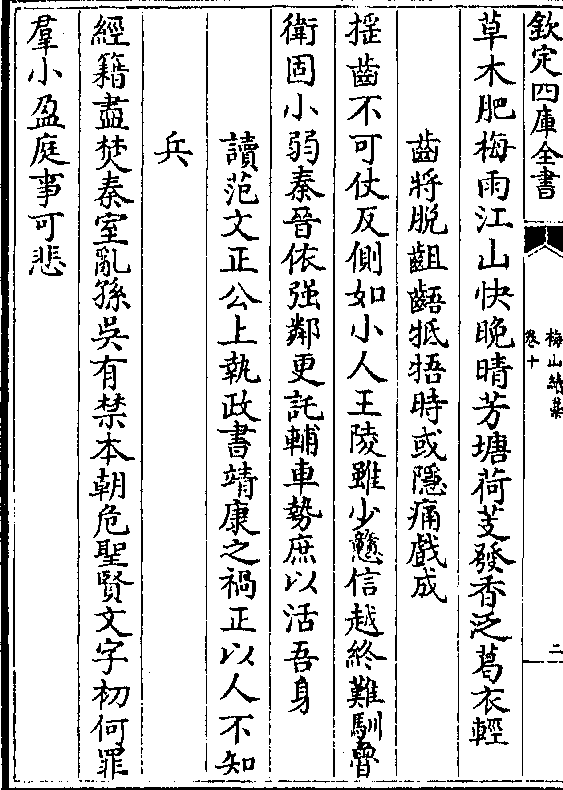 欽定四庫全書
梅山續藁
卷十
二
草木肥梅雨江山快晚晴芳塘荷芰發香泛葛衣輕
齒將脫齟齬牴牾時或隱痛戲成
揺齒不可仗反側如小人王陵雖少戇信越終難馴魯
衛固小弱秦晉依强鄰更託輔車勢庶以活吾身
讀范文正公上執政書靖康之禍正以人不知
兵
經籍盡焚秦室亂孫吳有禁本朝危聖賢文字初何罪
羣小盈庭事可悲